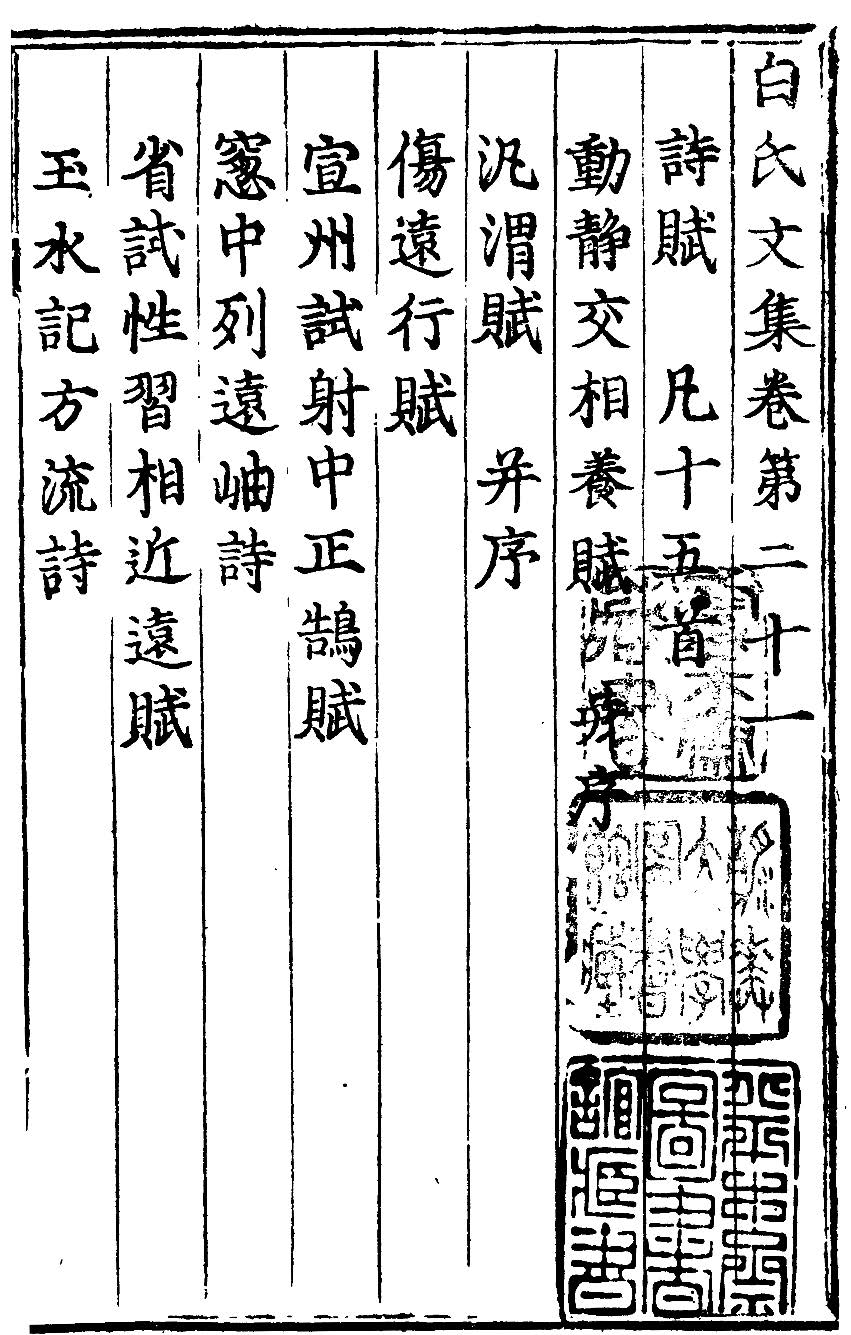 白氏文集卷第二十一
詩賦 凡十五首
動靜交相養賦 并序
汎渭賦 并序
傷遠行賦
宣州試射中正鵠賦
窻中列遠岫詩
省試性習相近遠賦
玉水記方流詩